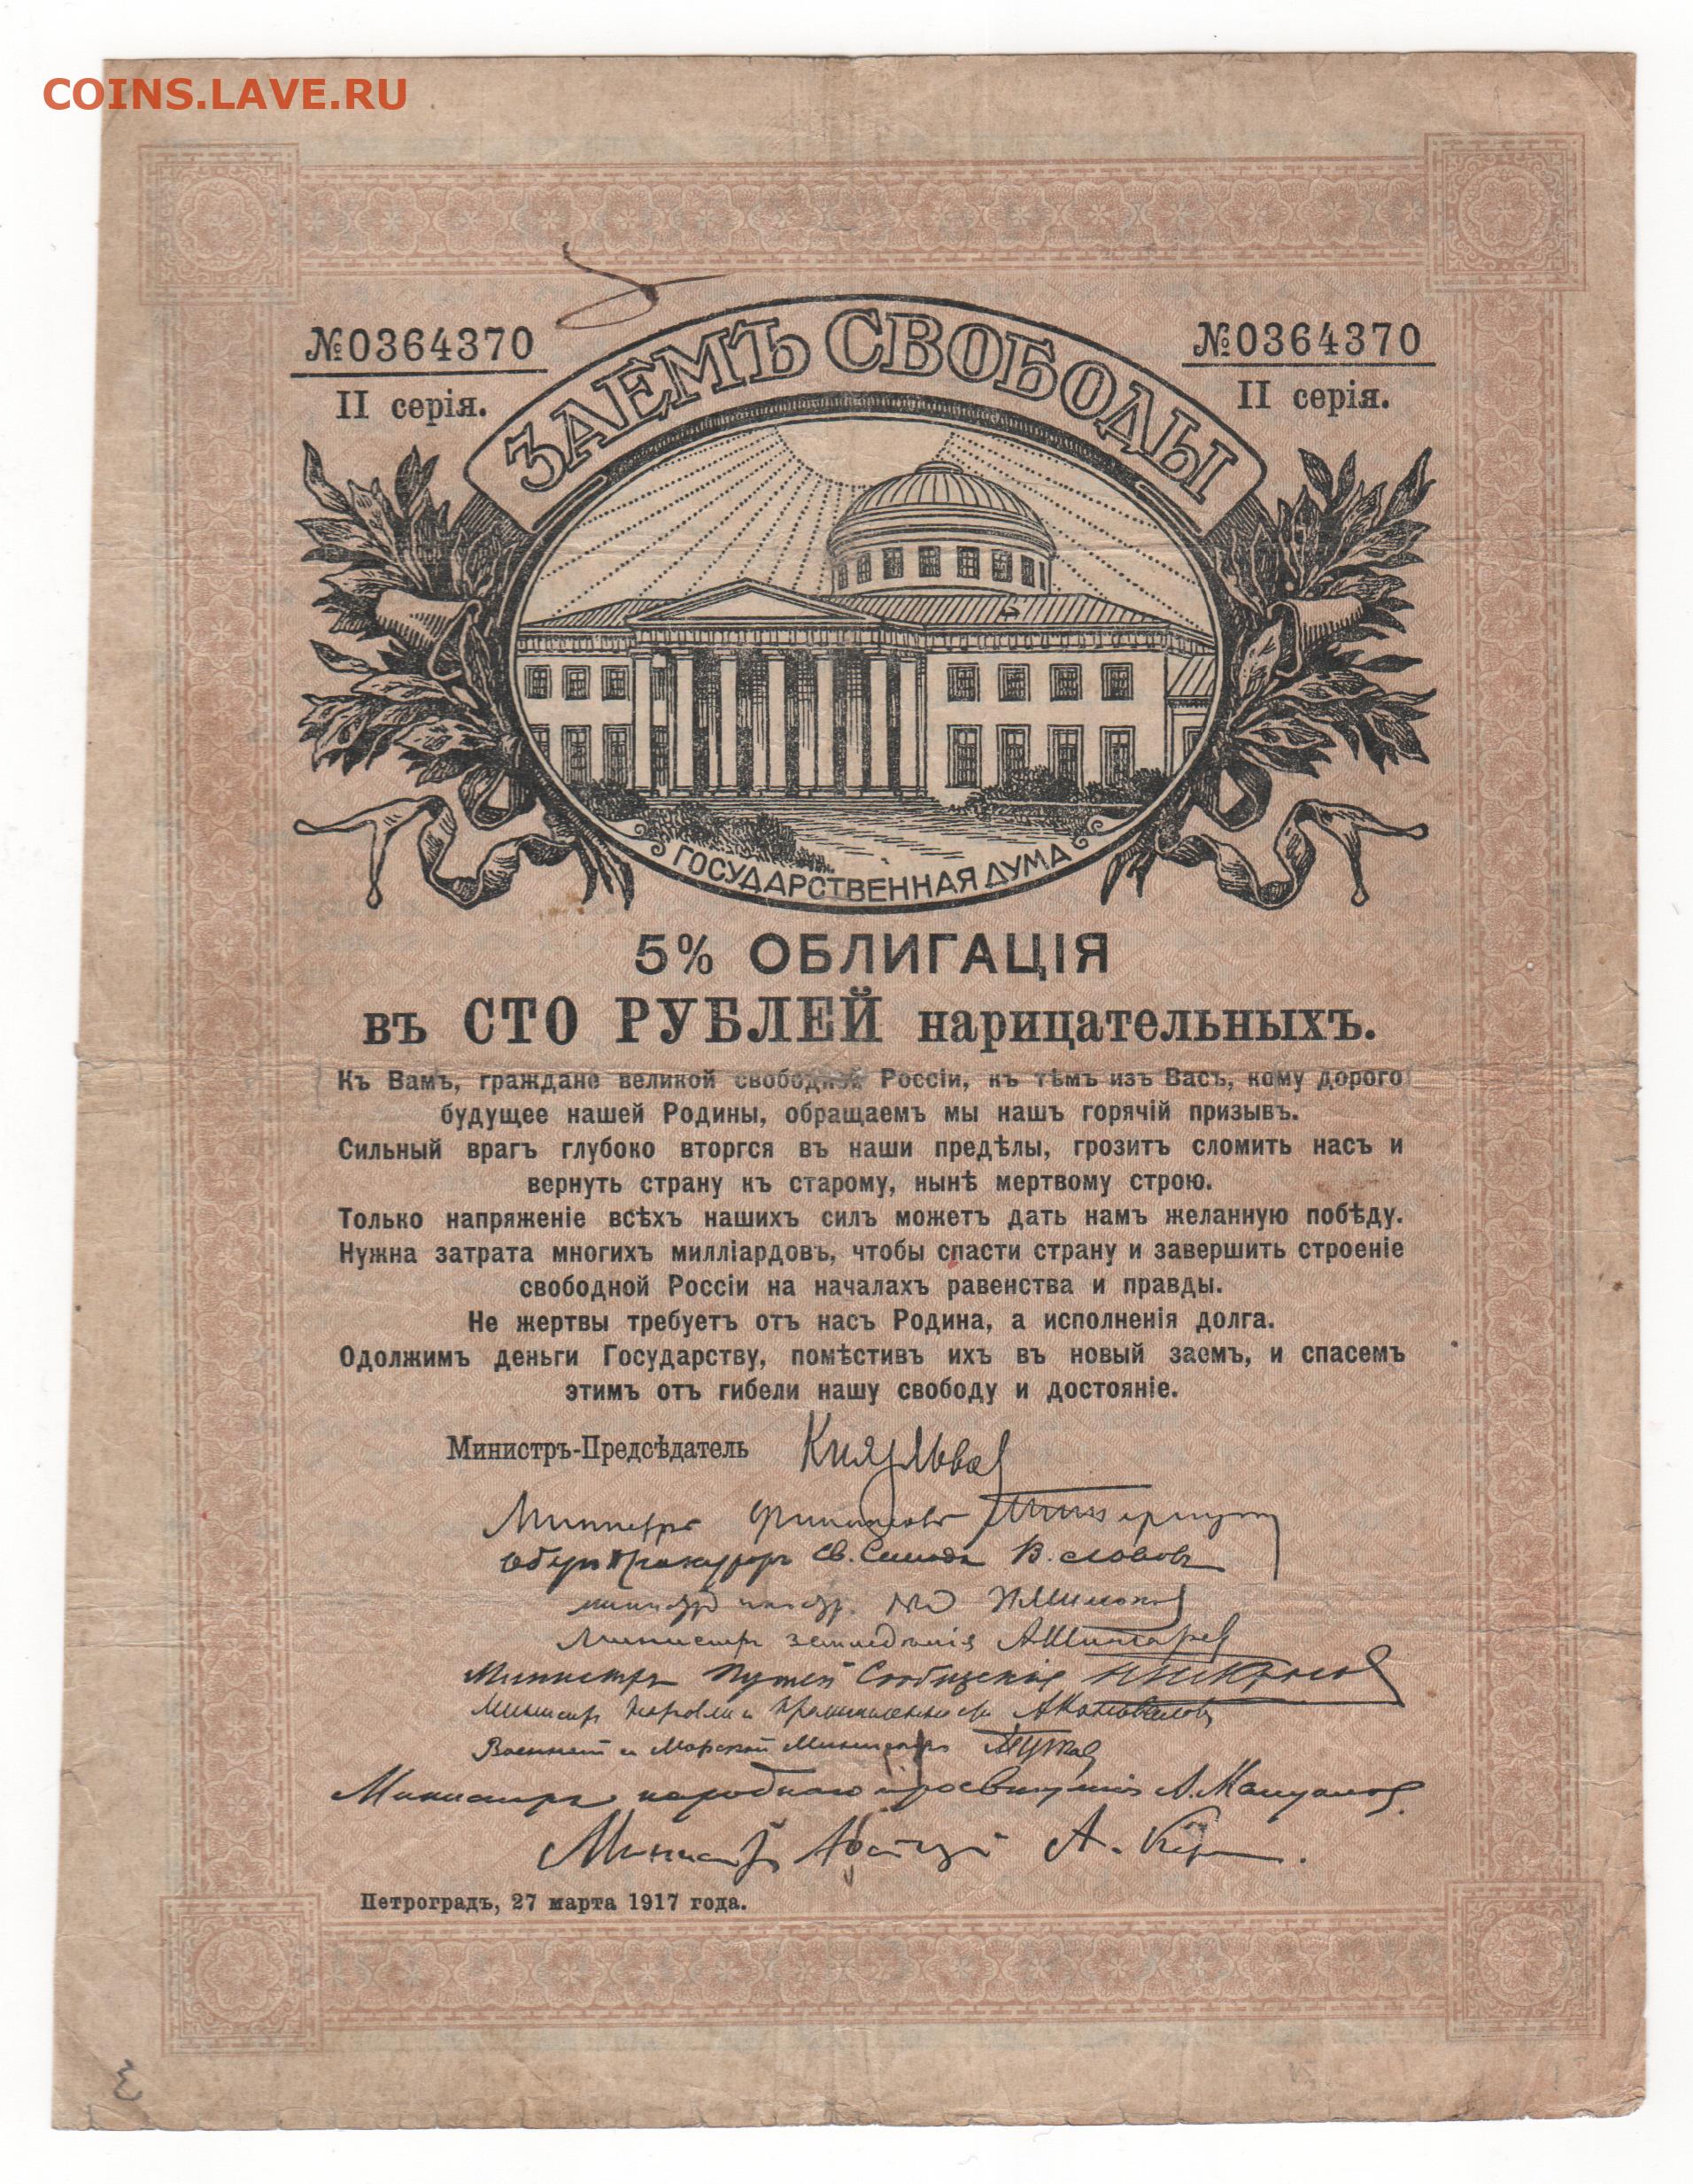 COINS.LAVE.RU
№0364370
II серія.
ЗАЕМЪ СВОБОДЫ
№0364370
II серія.
ГОСУДАРСТВЕННАЯ ДУМА
5% ОБЛИГАЦІЯ
въ СТО РУБЛЕЙ нарицательныхъ.
Къ Вамъ, граждане великой свободной Россіи, къ тѣмъ изъ Васъ, кому дорого
будущее нашей Родины, обращаемъ мы нашъ горячій призывъ.
Сильный врагъ глубоко вторгся въ наши предѣлы, грозитъ сломить насъ и
вернуть страну къ старому, нынѣ мертвому строю.
Только напряженіе всѣхъ нашихъ силъ можетъ дать намъ желанную побѣду.
Нужна затрата многихъ милліардовъ, чтобы спасти страну и завершить строеніе
свободной Россіи на началахъ равенства и правды.
Не жертвы требуетъ отъ насъ Родина, а исполненія долга.
Одолжимъ деньги Государству, помѣстивъ ихъ въ новый заемъ, и спасемъ
этимъ отъ гибели нашу свободу и достояніе.
Министръ-Предсѣдатель Князь Львов
Министръ Финансовъ
Оберъ Прокуроръ Св. Синода В. Львовъ
Министръ земледѣлія А Шингарев
Министръ Путей Сообщенія
Министръ Торговли и Промышленности А Коноваловъ
Военный и Морской Министръ
Министръ народнаго просвѣщенія А. Мануйлов
Министръ А. Кер
Петроградъ, 27 марта 1917 года.
3